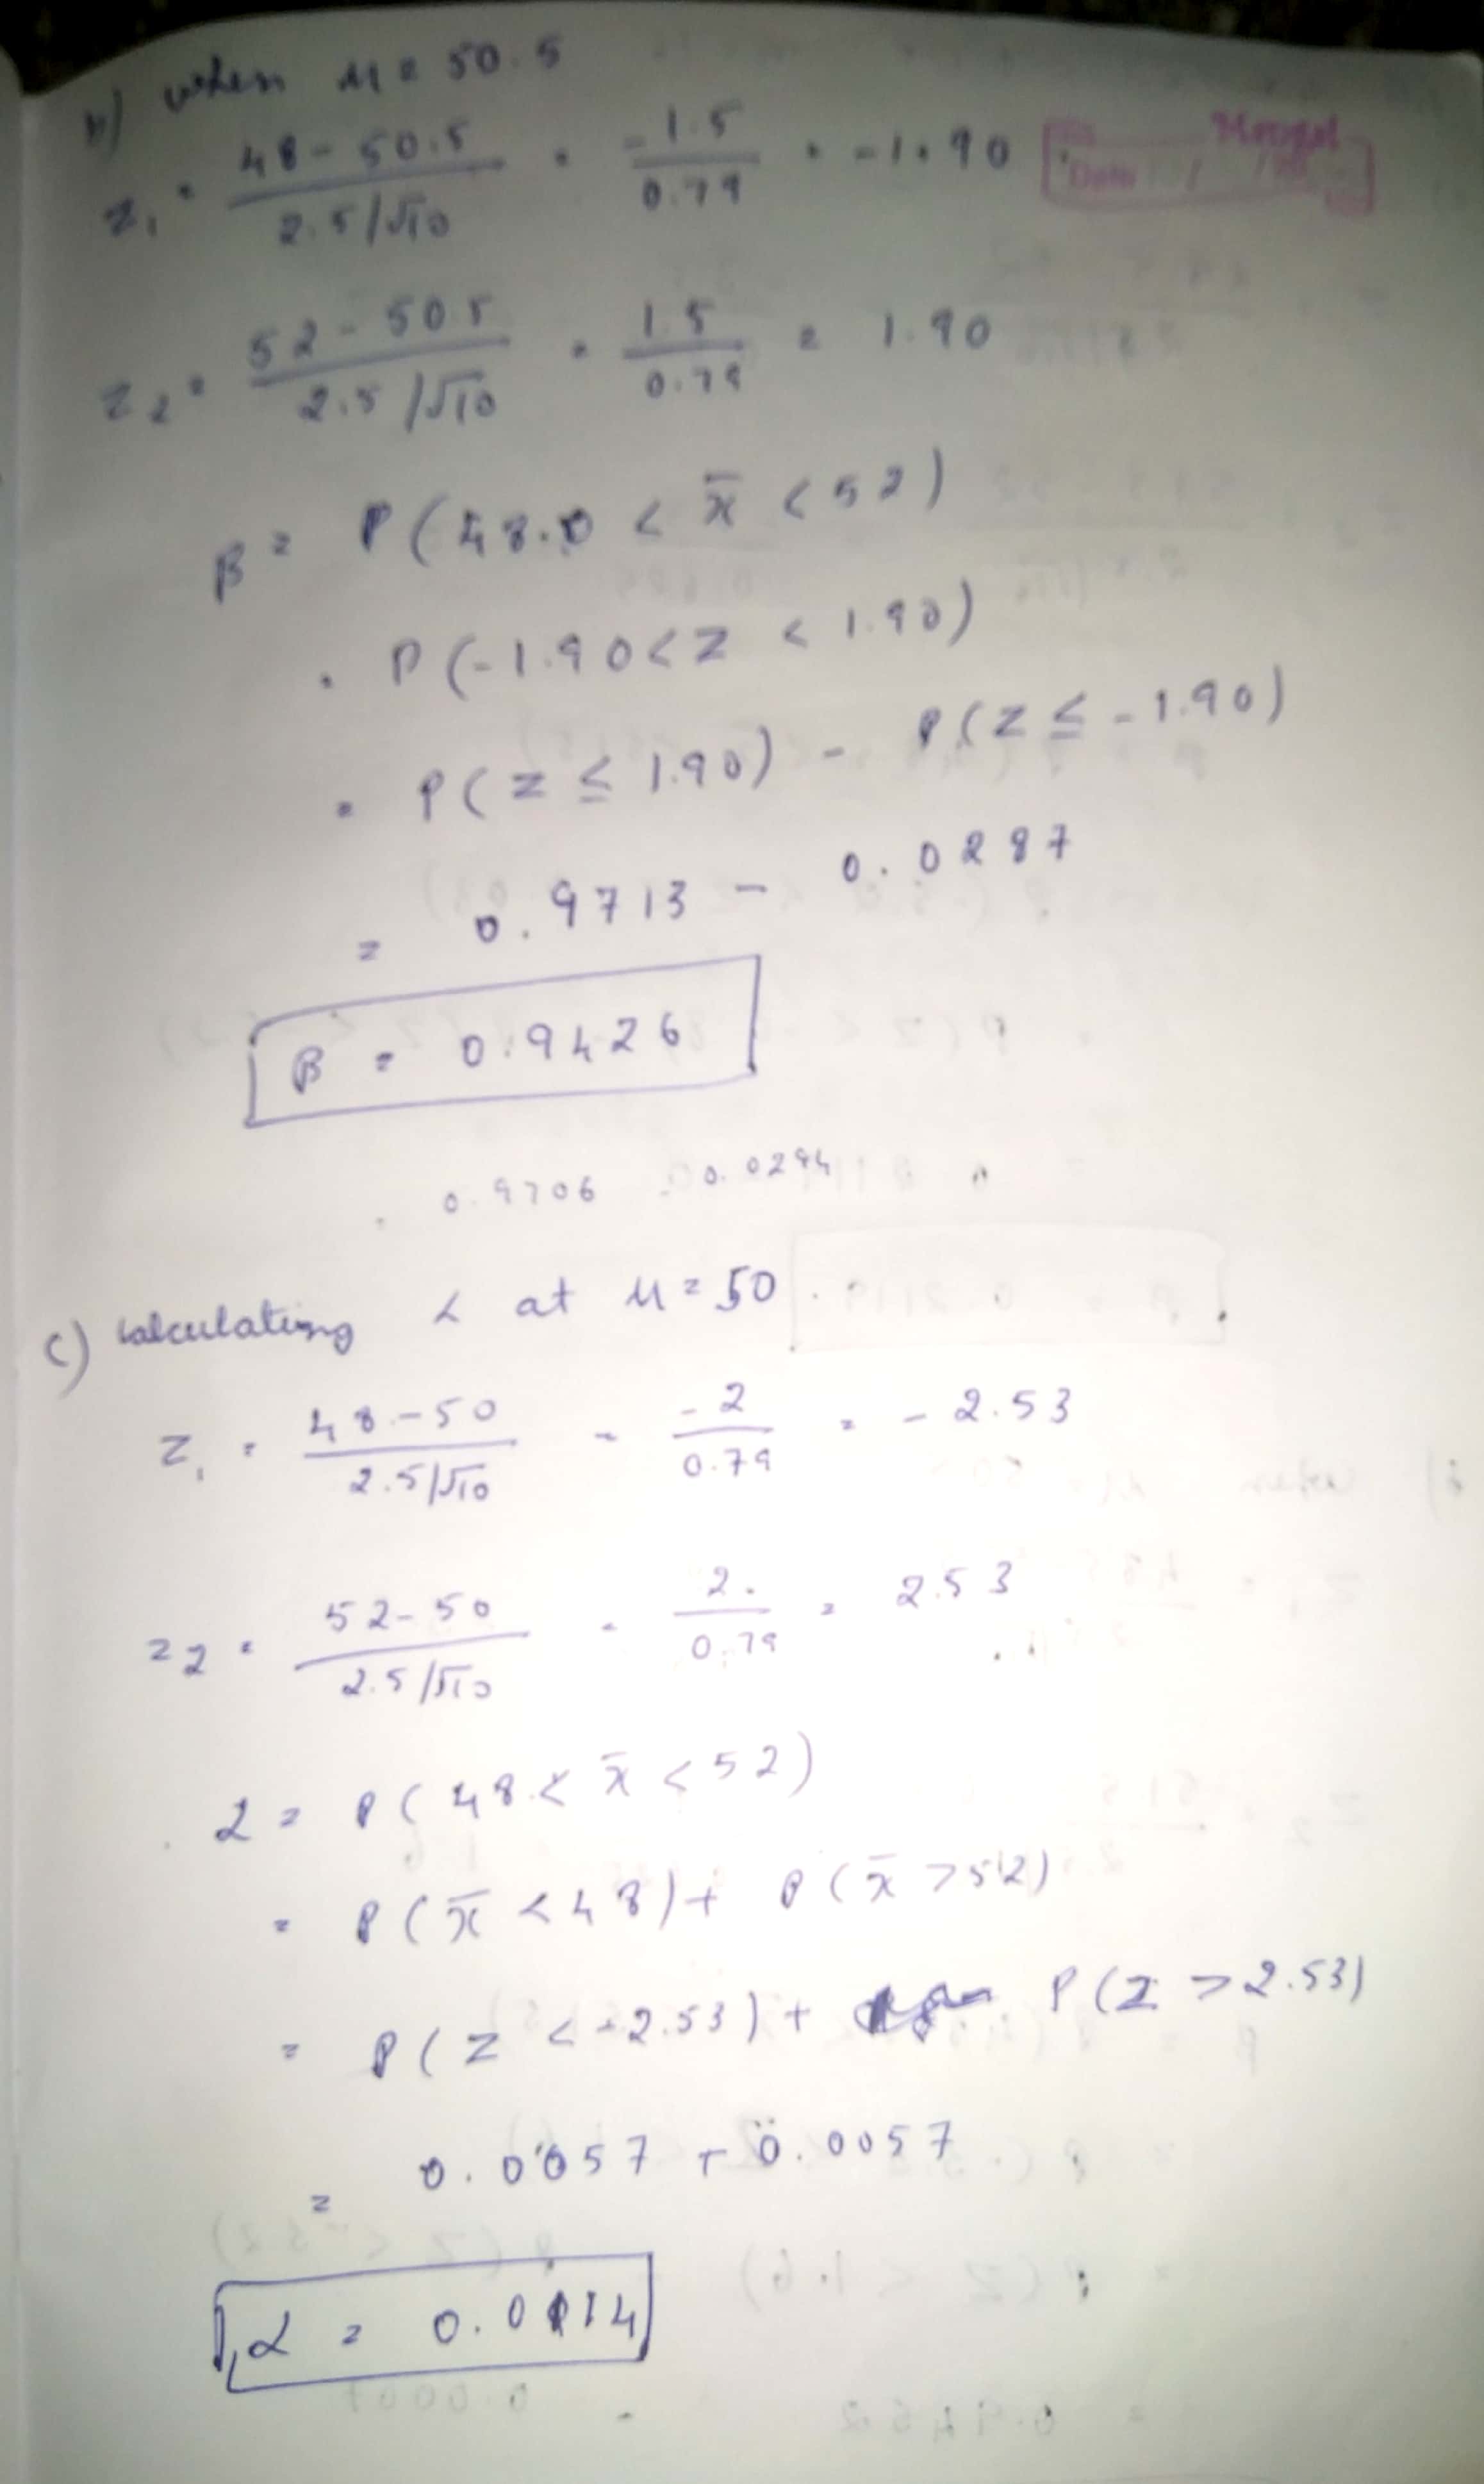 b) when μ = 50.5
z₁ = (48 - 50.5) / (2.5/√10) = -1.5 / 0.79 = -1.90
Mongal
Date / /
z₂ = (52 - 50.5) / (2.5/√10) = 1.5 / 0.79 = 1.90
β = P(48.0 < x̄ < 52)
= P(-1.90 < Z < 1.90)
= P(Z ≤ 1.90) - P(Z ≤ -1.90)
= 0.9713 - 0.0287
β = 0.9426
= 0.9706 - 0.0294
c) calculating α at μ = 50
z₁ = (48 - 50) / (2.5/√10) = -2 / 0.79 = -2.53
z₂ = (52 - 50) / (2.5/√10) = 2. / 0.79 = 2.53
α = P(48 < x̄ < 52)
= P(x̄ < 48) + P(x̄ > 52)
= P(Z < -2.53) + P(Z > 2.53)
= 0.0057 + 0.0057
α = 0.0114